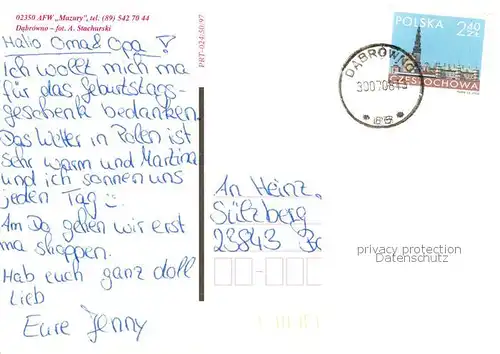 02350 AFW „Mazury", tel. (89) 542 70 44
Dąbrówno – fot. A. Stachurski
PRT-024/50/97
Hallo Oma & Opa !
Ich wollt mich ma
für das Geburtstags-
geschenk bedanken.
Das Wetter in Polen ist
sehr warm und Martina
und ich sonnen uns
jeden Tag
Am Do gehen wir erst
ma shoppen.
Hab euch ganz doll
Lieb
Eure Jenny
POLSKA 2,40 ZŁ
CZĘSTOCHOWA
DĄBRÓWNO
An Heinz
Sülzberg
23843
privacy protection
Datenschutz